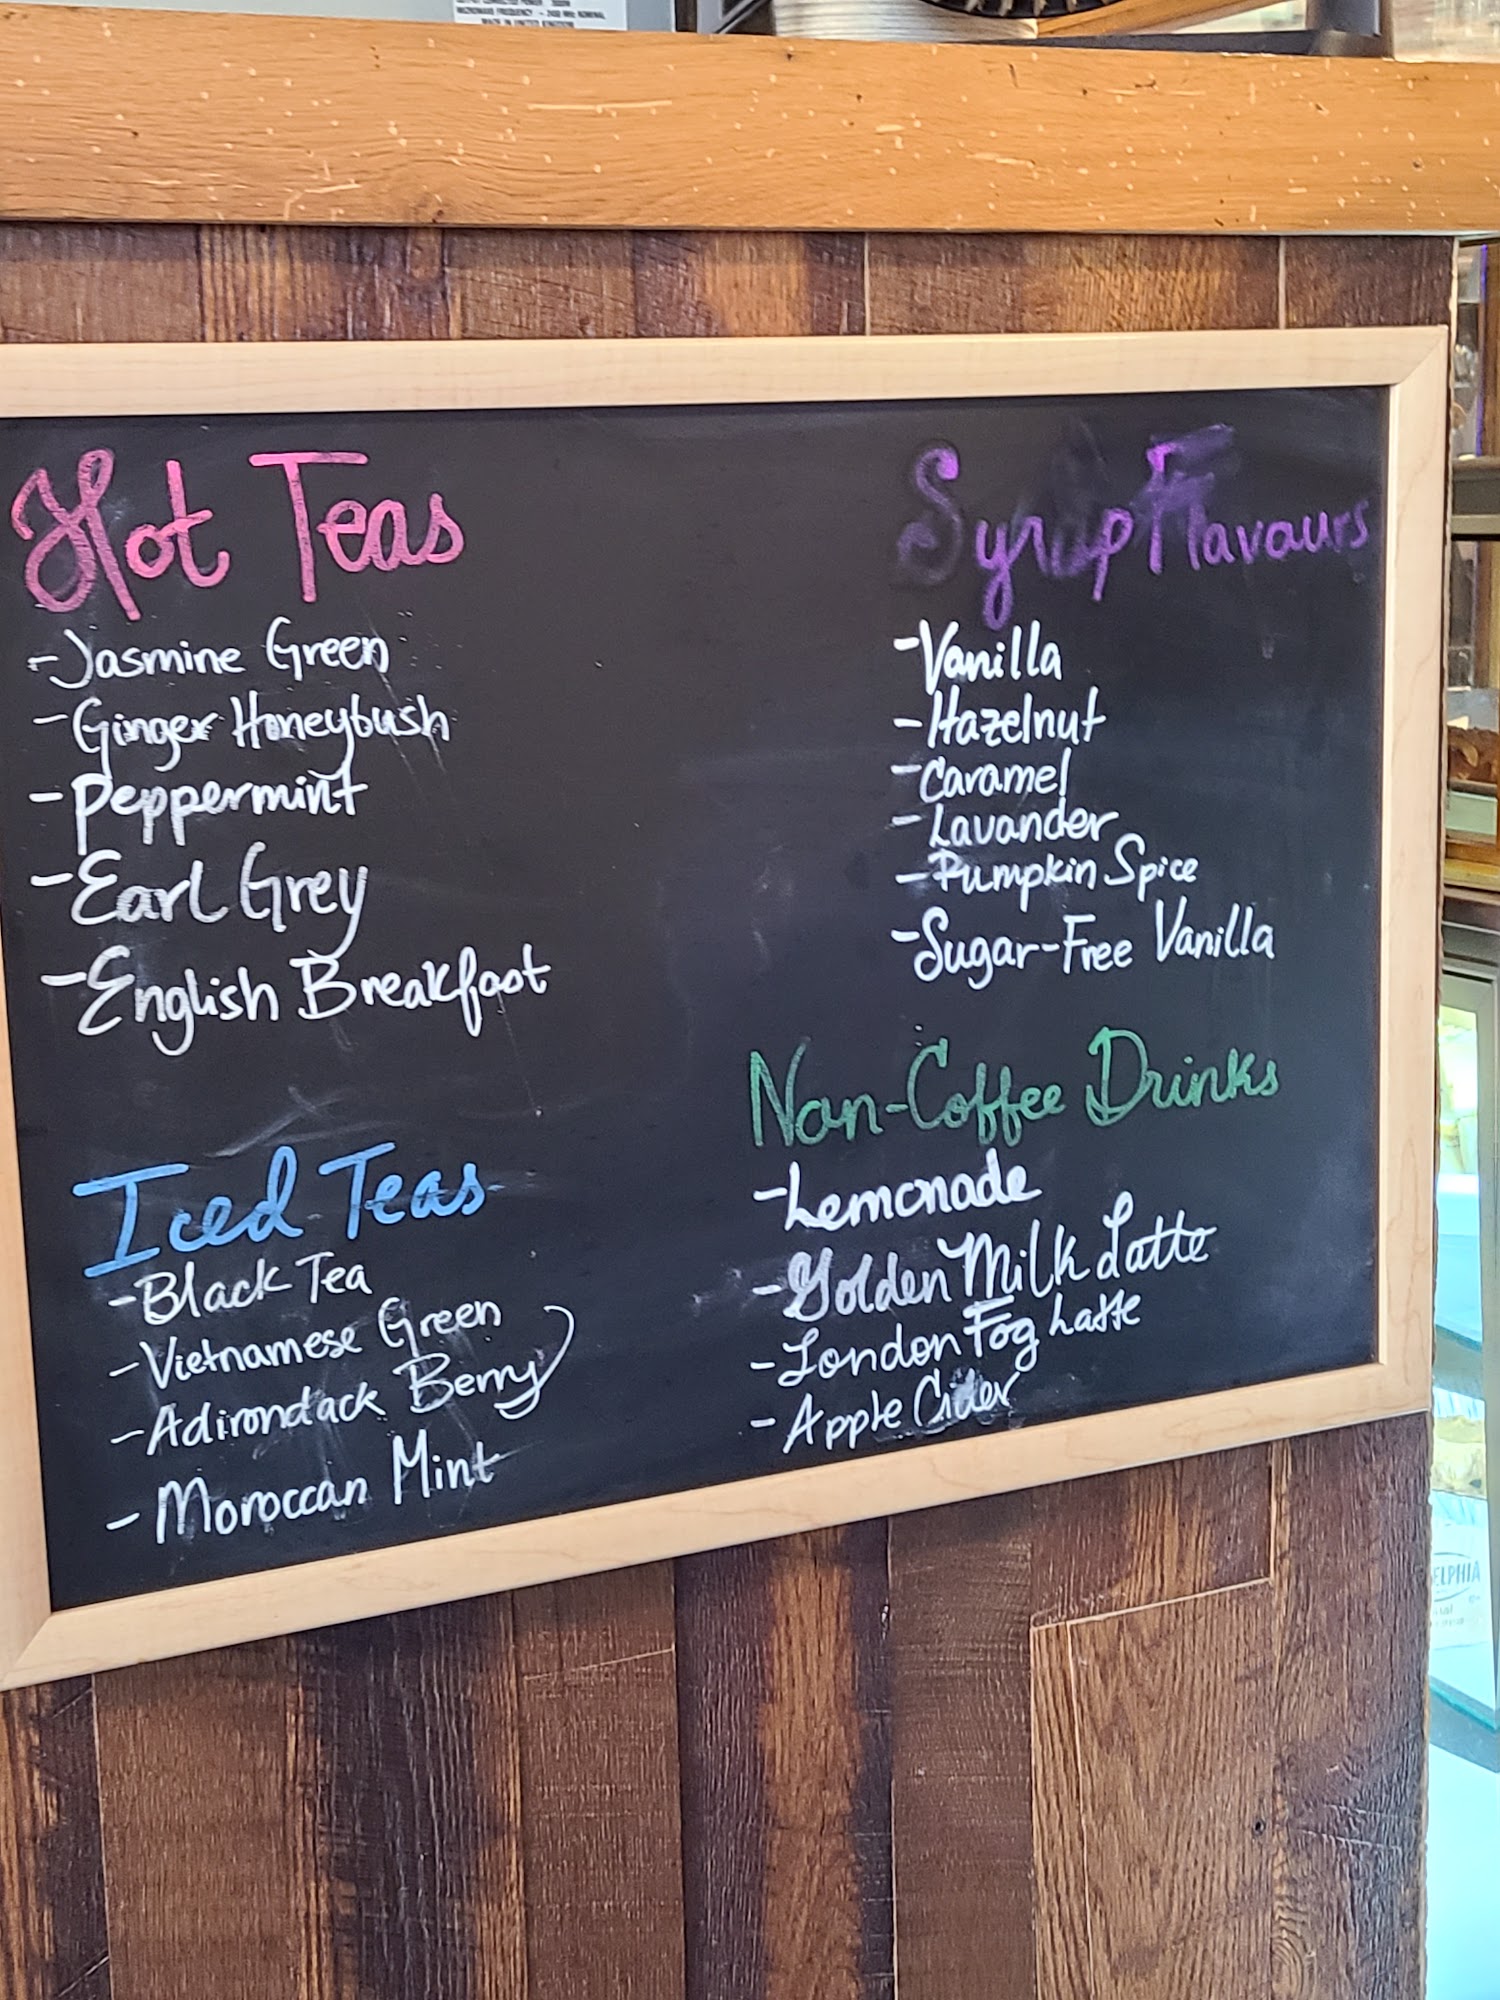 MICROWAVE FREQUENCY - 2450 MHz NOMINAL
MADE IN UNITED KINGDOM
Hot Teas
-Jasmine Green
-Ginger Honeybush
-Peppermint
-Earl Grey
-English Breakfast
Iced Teas
-Black Tea
-Vietnamese Green
-Adirondack Berry
-Moroccan Mint
Syrup Flavours
-Vanilla
-Hazelnut
-Caramel
-Lavander
-Pumpkin Spice
-Sugar-Free Vanilla
Non-Coffee Drinks
-Lemonade
-Golden Milk Latte
-London Fog Latte
-Apple Cider
ELPHIA